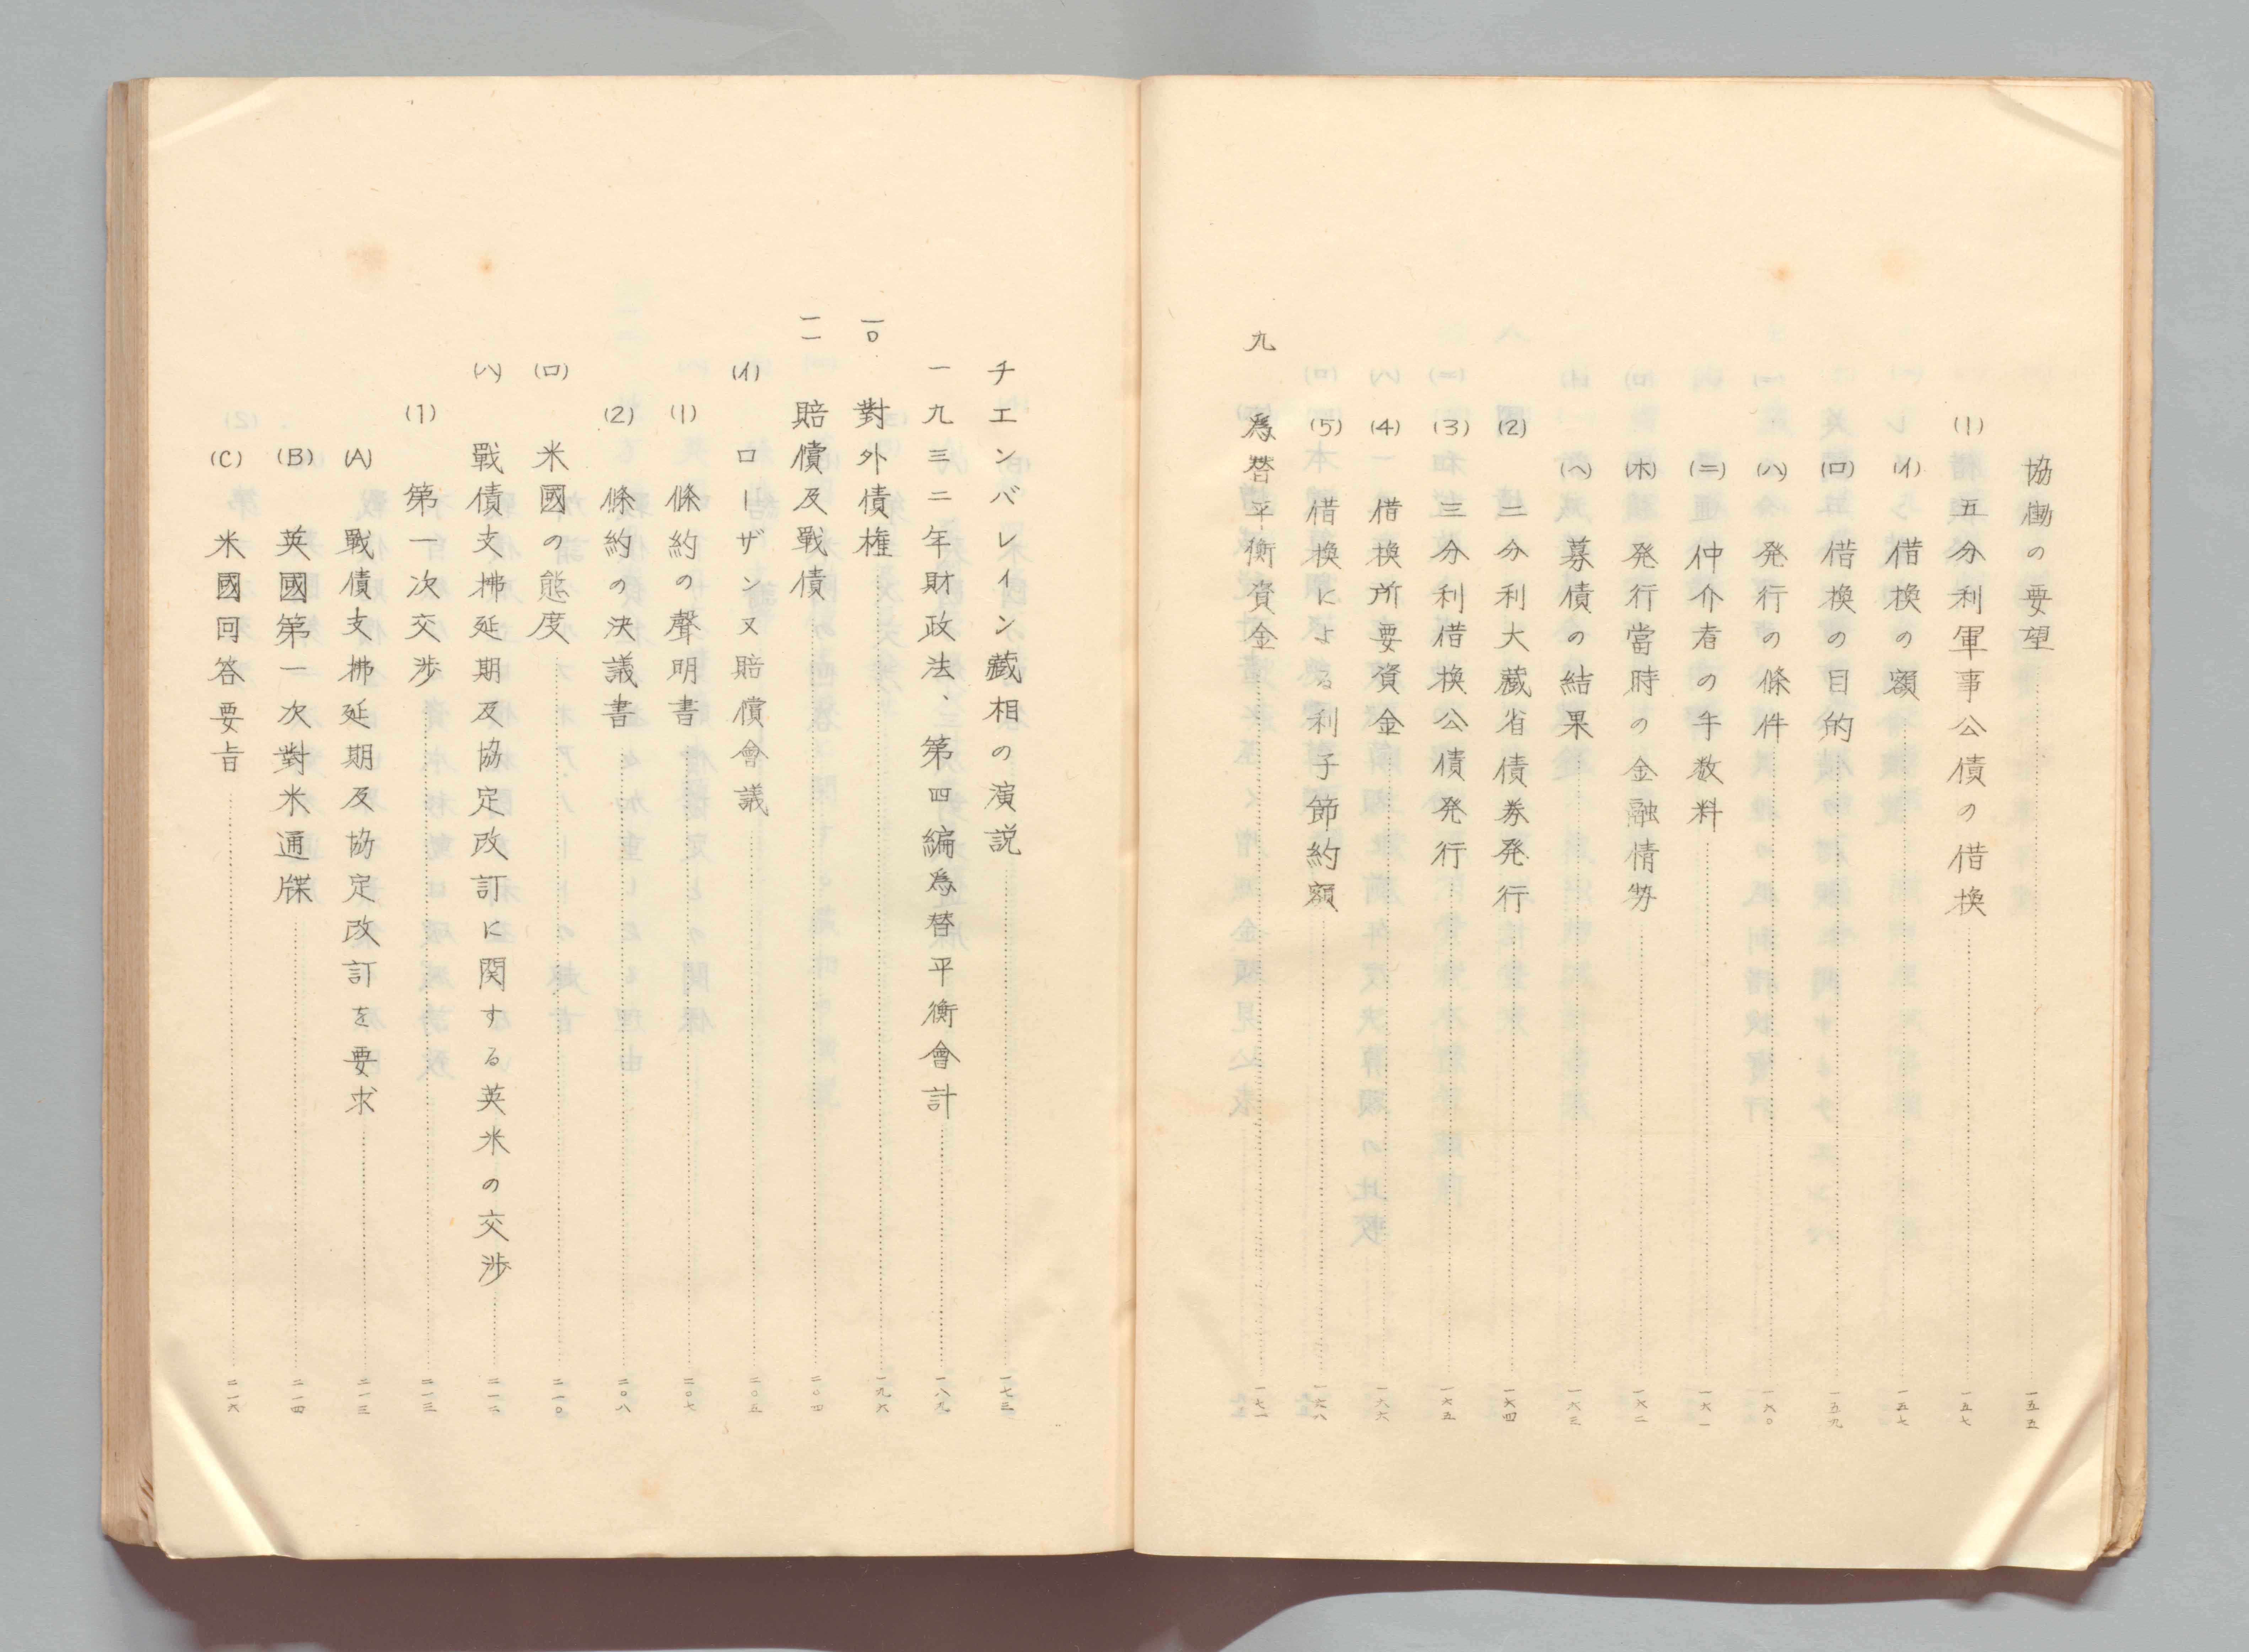 協働の要望……一五五
(1) 五分利軍事公債の借換……一五七
(イ) 借換の額……一五七
(ロ) 借換の目的……一五九
(ハ) 発行の條件……一六〇
(ニ) 仲介者の手数料……一六一
(ホ) 発行當時の金融情勢……一六二
(ヘ) 募債の結果……一六三
(2) 二分利大藏省債券発行……一六四
(3) 三分利借換公債発行……一六五
(4) 借換所要資金……一六六
(5) 借換による利子節約額……一六八
九 為替平衡資金……一七一
チエンバレイン藏相の演説……一七三
一九三二年財政法、第四編為替平衡會計……一八九
一〇 對外債権……一九六
一一 賠償及戰債……二〇四
(イ) ローザンヌ賠償會議……二〇五
(1) 條約の聲明書……二〇七
(2) 條約の決議書……二〇八
(ロ) 米國の態度……二一〇
(ハ) 戰債支拂延期及協定改訂に関する英米の交渉……二一二
(1) 第一次交渉……二一三
(A) 戰債支拂延期及協定改訂を要求……二一三
(B) 英國第一次對米通牒……二一四
(C) 米國回答要旨……二一六